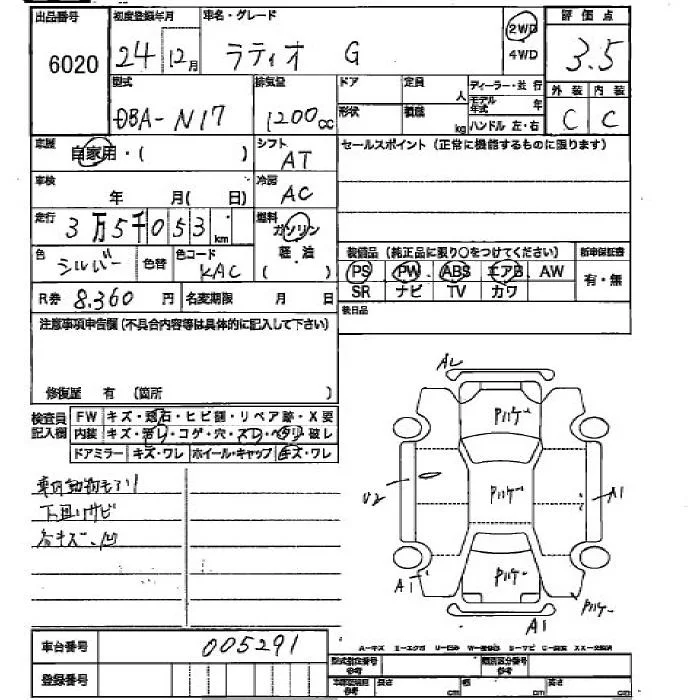 出品番号 初度登録年月 車名・グレード 2WD 評価点
6020 24年 12月 ラティオ G 4WD 3.5
型式 排気量 ドア 定員 人 ディーラー・並行 外装 内装
DBA-N17 1200cc 形状 積載 kg モデル年式 年 C C
ハンドル 左・右
車歴 自家用・( ) シフト AT セールスポイント(正常に機能するものに限ります)
車検 年 月(日) 冷房 AC
走行 3万5千053km 燃料 ガソリン
色 シルバー 色替 色コード KAC 軽・油 ( )
装備品(純正品に限り○をつけてください) 新車保証書
PS PW ABS エアB AW 有・無
R券 8,360円 名変期限 月 日 SR ナビ TV カワ
注意事項申告欄(不具合内容等は具体的に記入して下さい) 後日品
修復歴 有 (箇所 )
検査員記入欄 FW キズ・飛石・ヒビ割・リペア跡・X要
内装 キズ・汚レ・コゲ・穴・スレ・ヘタリ・破レ
ドアミラー キズ・ワレ ホイール・キャップ キズ・ワレ
AL
Pハゲー
U2 Pハゲー A1
下廻りサビ
各キズ・凹
A1 Pハゲー Pハゲー
A1
車台番号 005291
登録番号
A-キズ
型式指定番号 参考 類別区分番号 参考
長さ cm 幅 cm 高さ cm